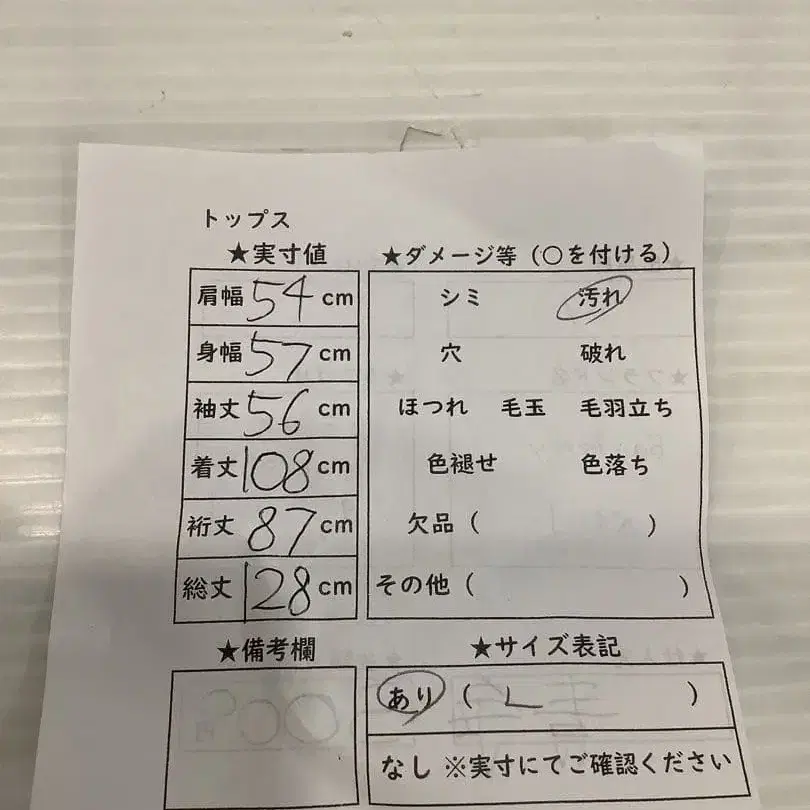 トップス
★実寸値
肩幅 54 cm
身幅 57 cm
袖丈 56 cm
着丈 108 cm
裄丈 87 cm
総丈 128 cm
★備考欄
★ダメージ等（○を付ける）
シミ 汚れ
穴 破れ
ほつれ 毛玉 毛羽立ち
色褪せ 色落ち
欠品（ ）
その他（ ）
★サイズ表記
あり（ L ）
なし ※実寸にてご確認ください